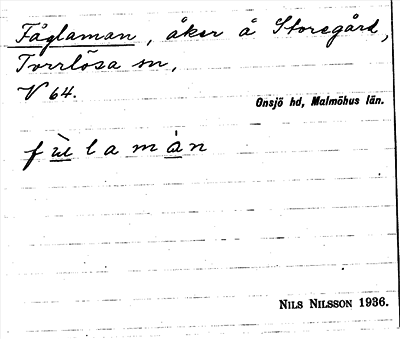 Fåglaman, åker å Storegård,
Torrlösa sn,
V 64.
Onsjö hd, Malmöhus län.
f l a m à n
NILS NILSSON 1936.